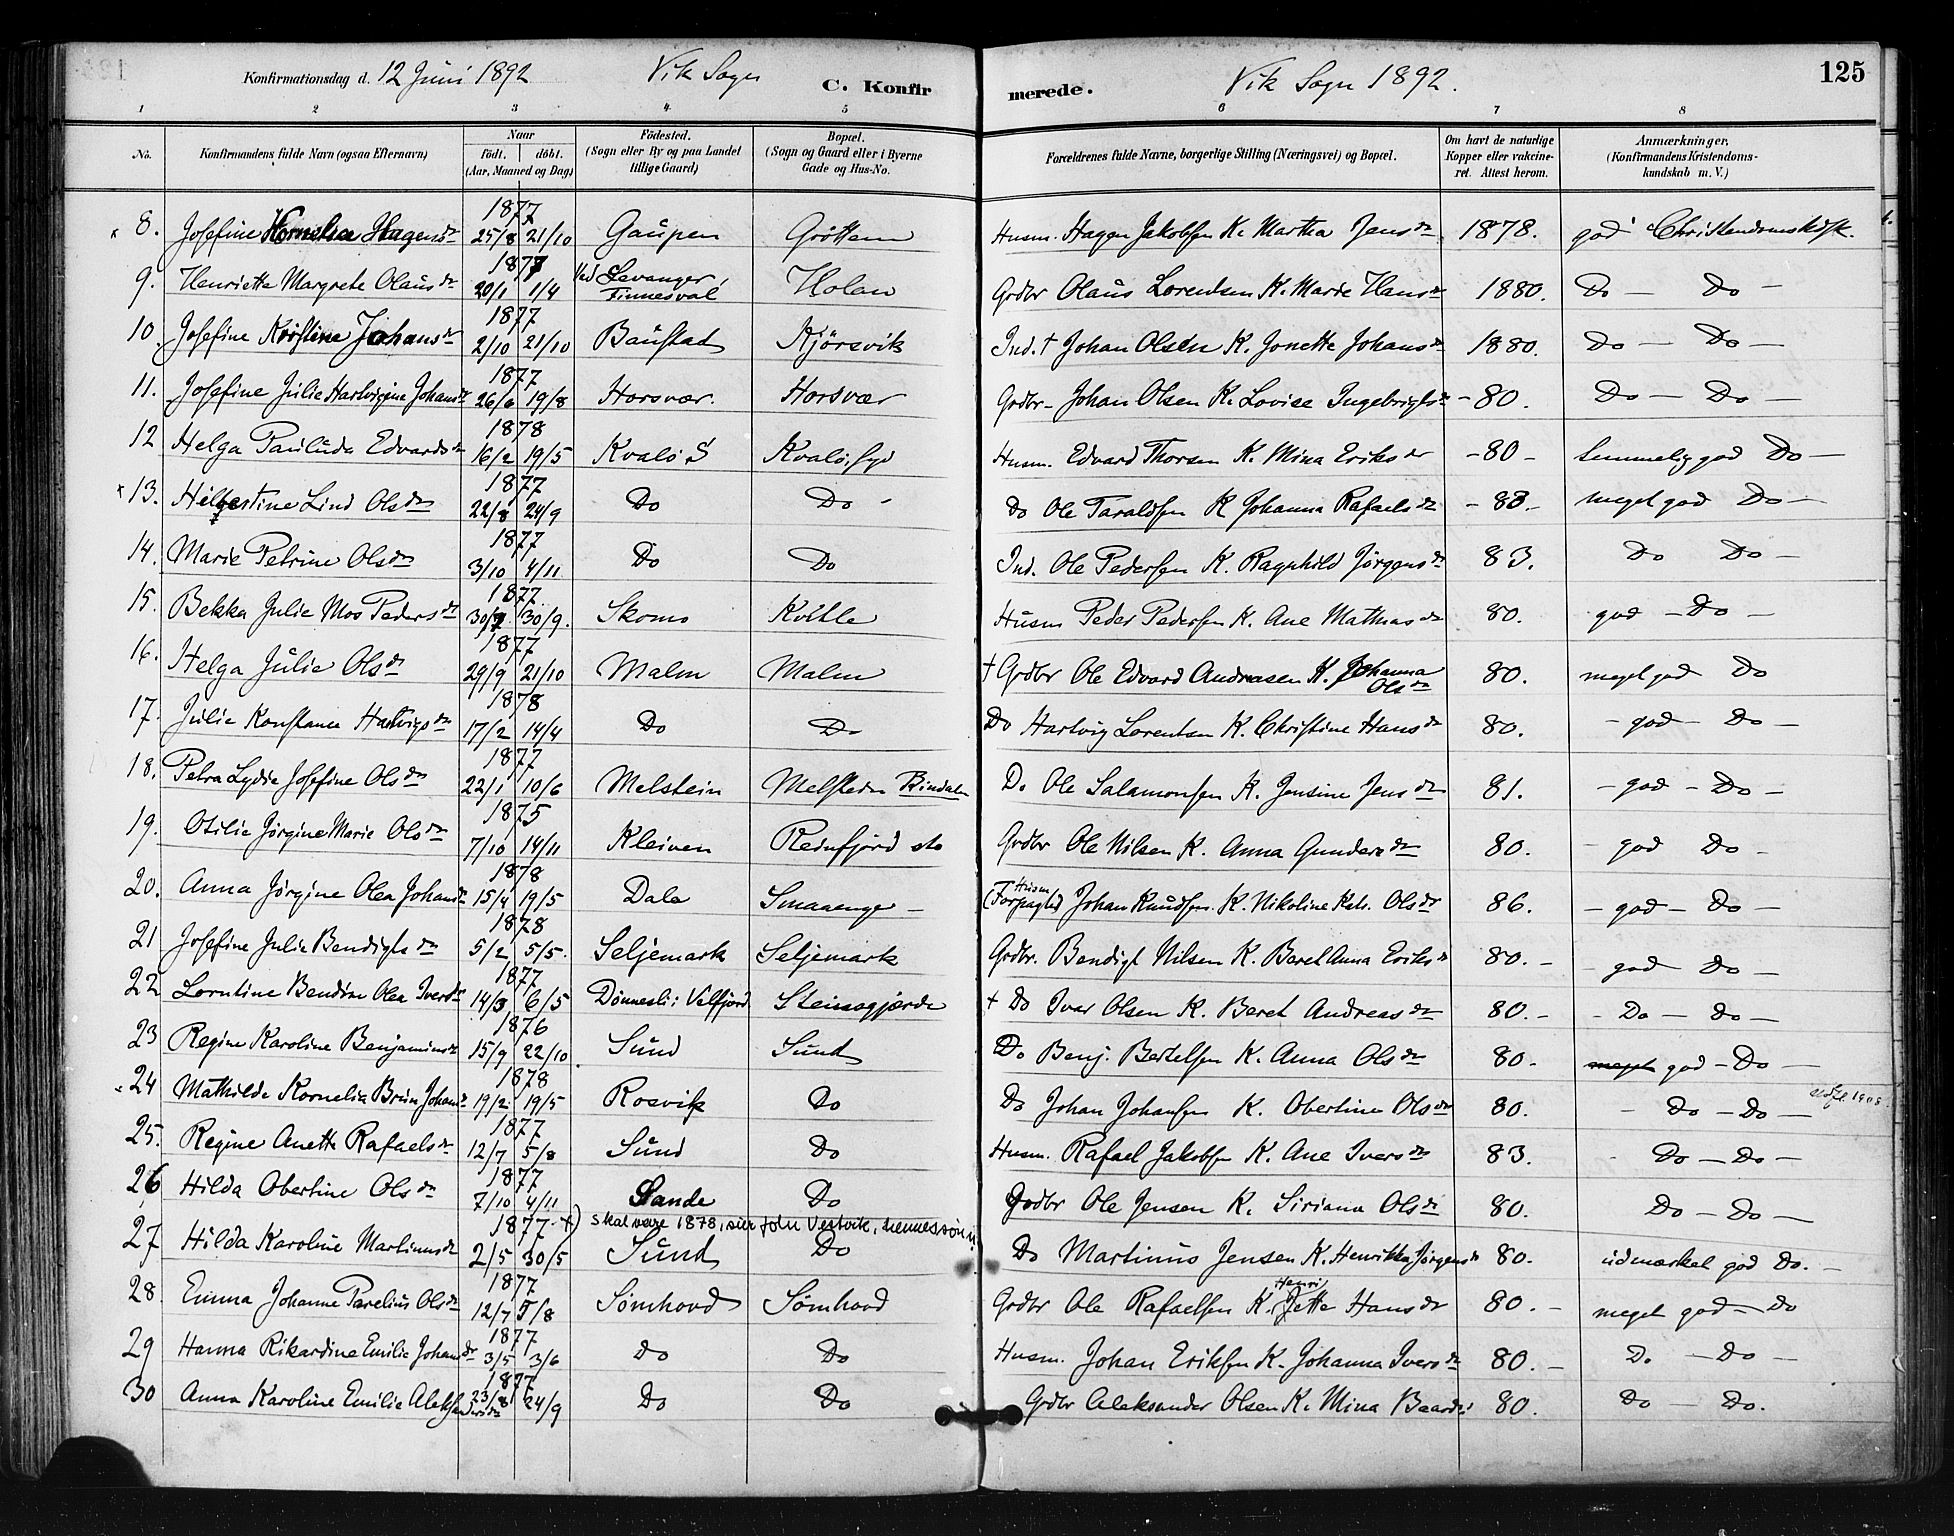 Konfirmationsdag d. 12 Juni 1892 Vik Sogn C. Konfir
merede. Vik Sogn 1892. 125
1 2 3 4 5 6 7 8
No. Konfirmandens fulde Navn (ogsaa Efternavn) Naar Födt. döbt. (Aar, Maaned og Dag) Födested. (Sogn eller By og paa Landet tillige Gaard) Bopæl. (Sogn og Gaard eller i Byerne Gade og Hus-No. Forældrenes fulde Navne, borgerlige Stilling (Næringsvei) og Bopæl. Om havt de naturlige Kopper eller vakcineret. Attest herom. Anmærkninger. (Konfirmandens Kristendomskundskab m. V.)
x 8. Josefine Kornelia Hagensdr 1877 25/8 21/10 Gaupen Gröttem Husm. Hagen Jakobsen K. Martha Jensdr 1878. god Christendomskdsk.
9. Henriette Margrete Olausdr 1877 20/1 1/4 Ved Levanger, Finnesval Holan Grdbr Olaus Lorentsen K. Marie Hansdr 1880. Do — Do —
10. Josefine Kristine Johansdr 1877 2/10 21/10 Baustad Kjörsvik Ind. † Johan Olsen K. Jonette Johansdr 1880. Do — Do —
11. Josefine Julie Hartvigine Johansdr 1877 26/6 19/8 Horsvær. Horsvær Grdbr- Johan Olsen K. Lovise Ingebrigtsdr - 80. Do — Do —
12 Helga Pauluda Edvardsdr 1878 16/2 19/5 Kvalö S Kvalö, syd Husm. Edvard Thorsen K. Mina Eriksdr - 80 - temmelig god Do —
x 13. Hilbertine Lind Olsdr 1877 22/8 24/9 Do Do Do Ole Taraldsen K Johanna Rafaelsdr - 83 - meget god Do —
14. Marie Petrine Olsdr 1877 3/10 4/11 Do Do Ind. Ole Pedersen K. Ragnhild Jörgensdr 83. Do Do —
15. Bekka Julie Moo Pedersdr 1877 30/7 30/9. Skomo Kvitle Husm Peder Pedersen K. Ane Mathiasdr 80. god — Do —
16. Helga Julie Olsdr 1877 29/9 21/10 Malm Malm † Grdbr Ole Edvard Andreasen K. Johanna Olsdr 80. meget god Do
17. Julie Konstance Hartvigsdr 1878 17/2 14/4 Do Do Do Hartvig Lorentsen K. Christine Hansdr 80. - god - Do —
18. Petra Lydia Josefine Olsdr 1877 22/1 10/6 Melstein Melsteden Bindalen Do Ole Salamonsen K. Jensine Jensdr 81. - god - Do —
19. Otilie Jörgine Marie Olsdr 1875 7/10 14/11 Kleiven Reinfjord Grdbr Ole Nilsen K. Anna Gundersdr 80. - god Do -
20. Anna Jörgine Olea Johansdr 1878 15/4 19/5 Dale Smaaenge - (Husm Forpagted Johan Knudsen K. Nikoline Kat. Olsdr 86. - god - Do —
21 Josefine Julie Bendigtsdr 1878 5/2 5/5. Seljemark Seljemark Grdbr. Bendigt Nilsen K. Beret Anna Eriksdr 80. - - god Do —
22 Lorntine Bendine Olea Iversdr 1877 14/3 6/5 Dönnesli: Velfjord Steinsogjerde † Do Ivar Olsen K. Beret Andreasdr 80. - - Do — Do —
23 Regine Karoline Benjaminsdr 1876 15/9 22/10 Sund Sund Do Benj. Bertelsen K. Anna Olsdr 80. - meget god - Do —
24 Mathilde Kornelia Brun Johansdr 1878 19/2 19/5 Rosvik Do Do Johan Johansen K. Obertine Olsdr 80. - Do — Do —
25. Regine Anette Rafaelsdr 1877 12/7 5/8 Sund Do Husm. Rafael Jakobsen K. Ane Iversdr 83. - Do — Do —
26 Hilda Obertine Olsdr 1877 7/10 4/11 Sande Do Grdbr Ole Jensen K. Siriana Olsdr 80. Do — Do —
x) skal være 1878, sier John Vestvik,
27 Hilda Karoline Martinusdr 1877 2/5 30/5 Sund Do Do Martinus Jensen K. Henrikka Jörgensdr 80. udmærket god Do. —
28. Emma Johanne Parelius Olsdr 1877 12/7 5/8 Sömhovd Sömhovd Grdbr Ole Rafaelsen K. Henri Jette Hansdr 80. - meget god - Do
29 Hanna Rikardine Emilie Johansdr 1877 3/5 3/6 Do Do Husm. Johan Eriksen K. Johanna Iversdr 80. - Do — Do —
30 Anna Karoline Emilie Aleksandersdr 1877 23/8 24/9 Do Do Grdbr Aleksander Olsen K. Mina Baardsdr 80. Do — Do.